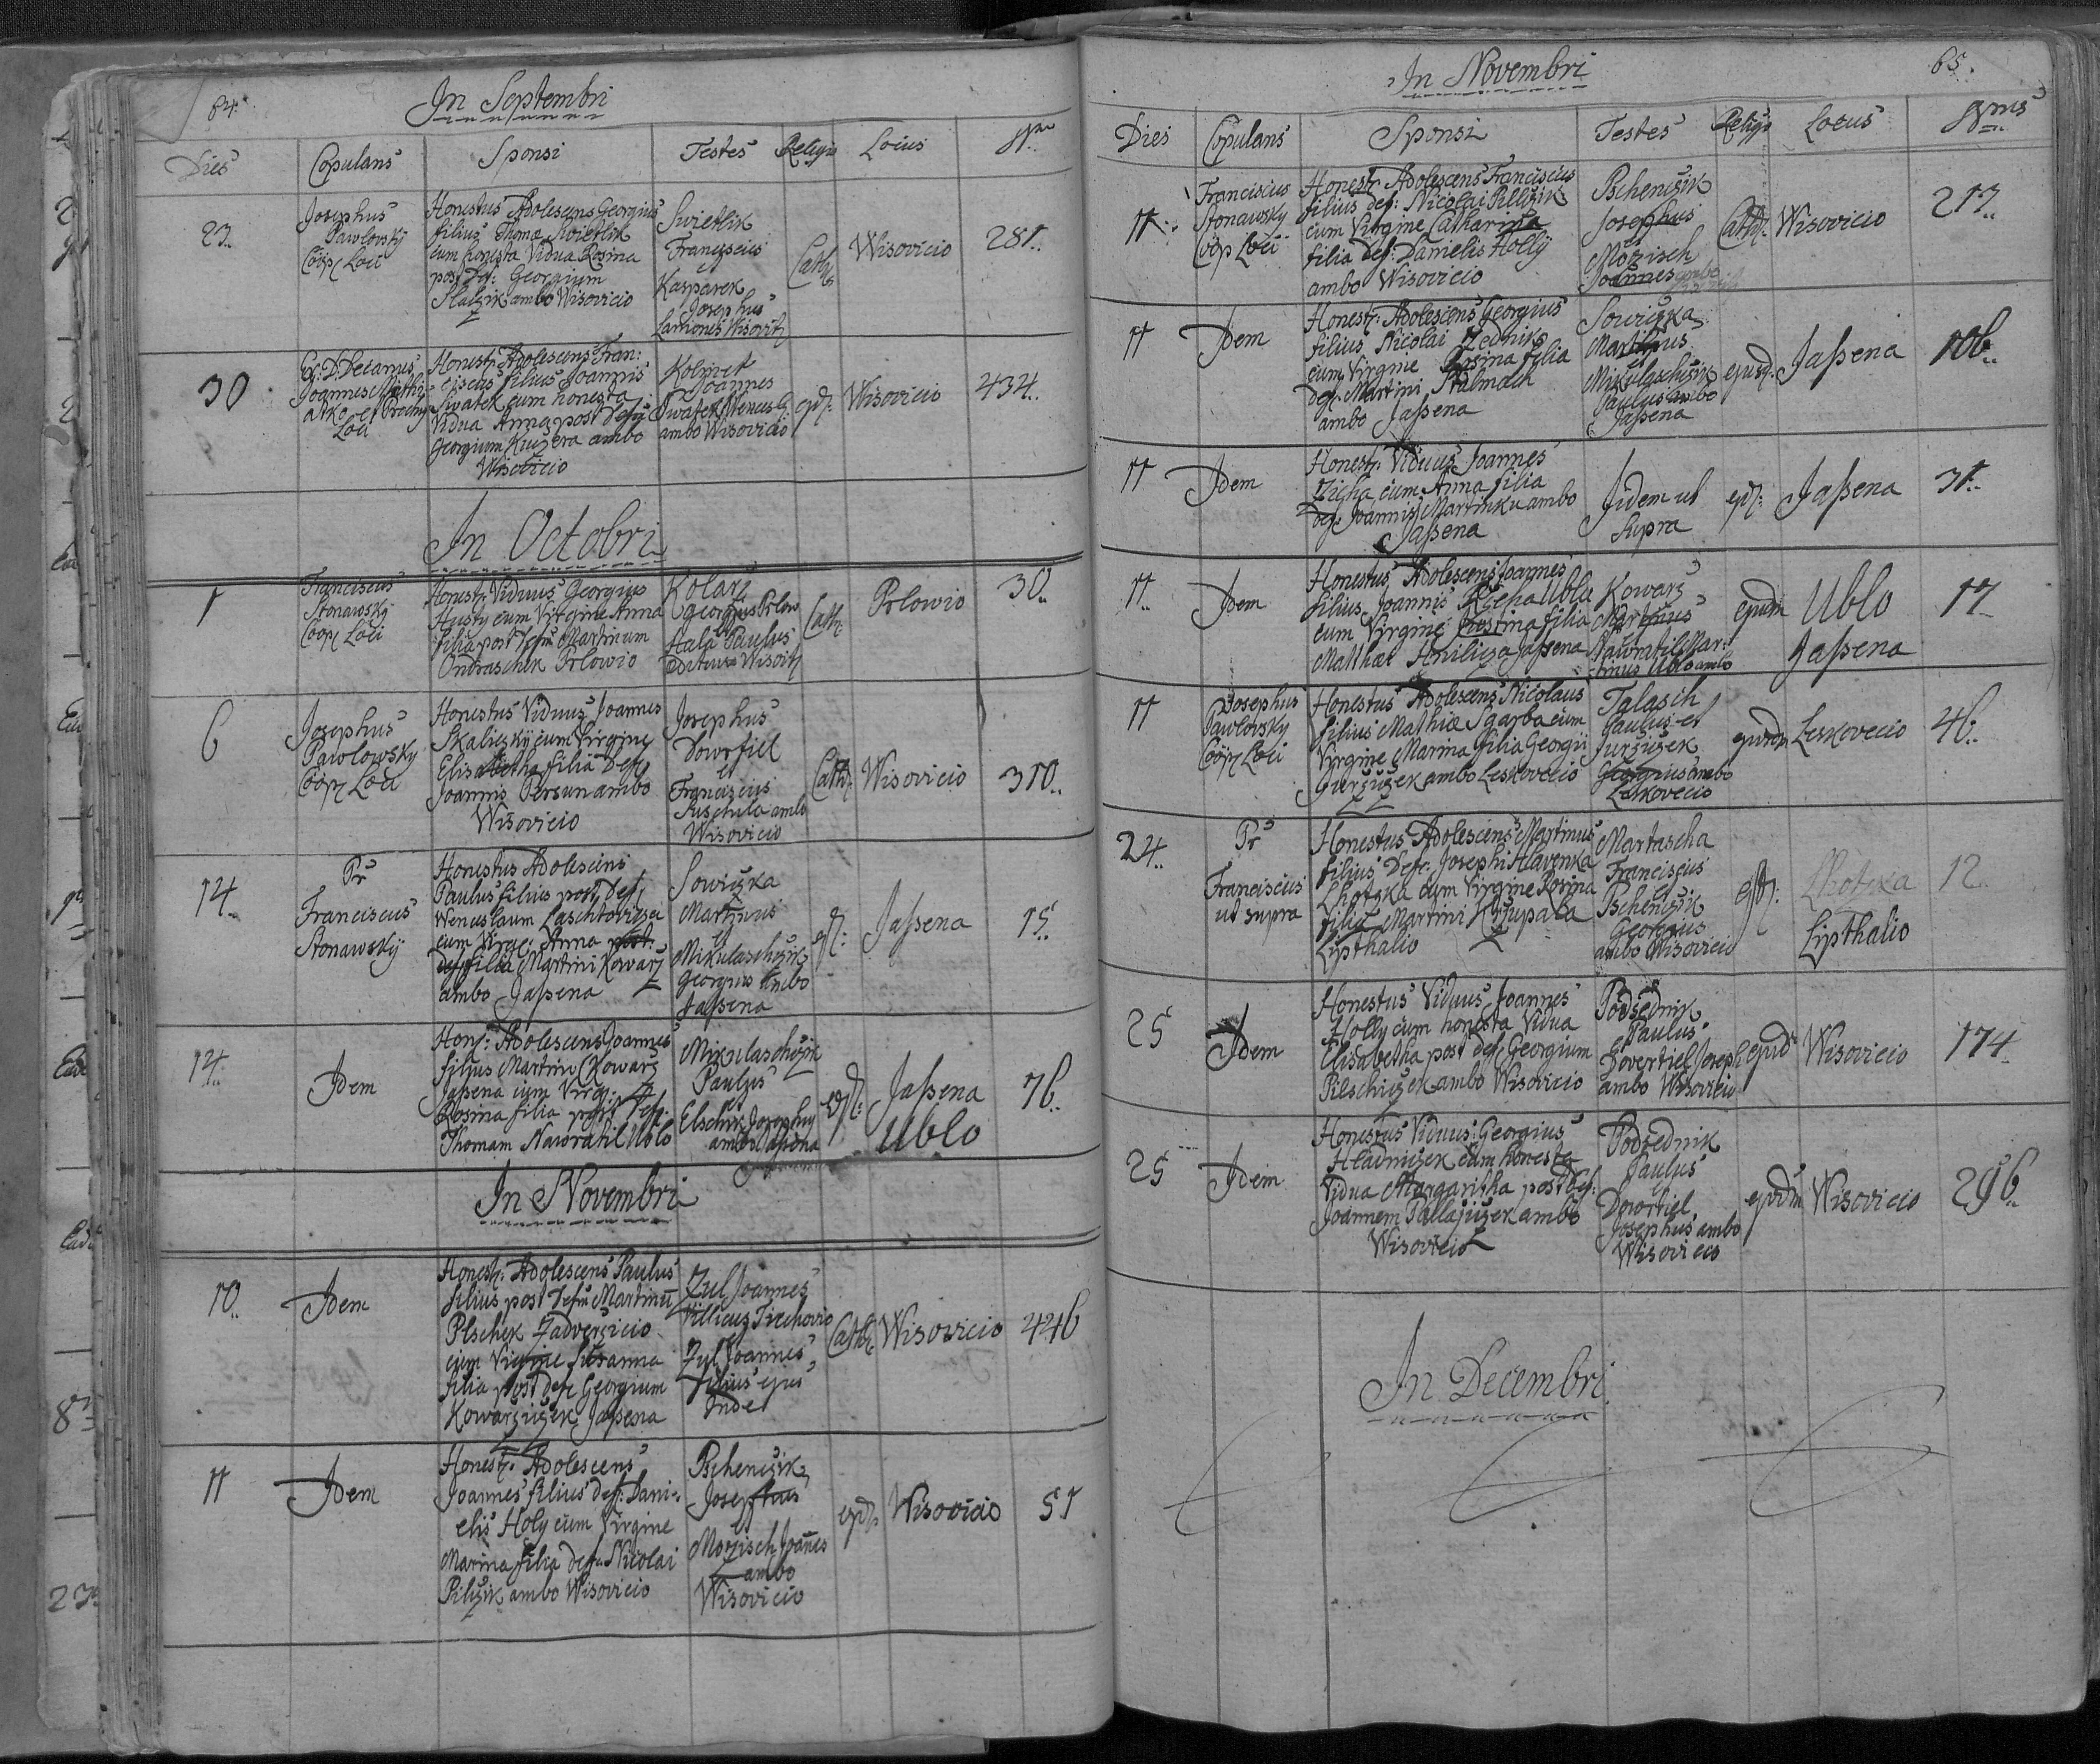 64.
In Septembri
Dies Copulans Sponsi Testes Religio Locus
23..
Josephus
Pawlovský
Coop: Loci
Honestus Adolescens Georgius
filius Thomæ Swietlik
cum honesta Vidua Rosina
post Def: Georgium
ambo Wisovicio
Swietlik
Franciscus
et
Kasparek
Josephus
Wisovitz
Cath:
Wisovicio
281..
30
D. Decanus
Joannes
Loci
Honest: Adolescens Fran:
ciscus filius Joannis
Swatek cum honesta
Vidua Anna post
Georgium Kuczera ambo
Wisovicio
Joannes
Swatek
ambo Wisovicio
Wisovicio
434..
In Octobri
1
Franciscus
Stonawský
Coop: Loci
Honest: Viduus Georgius
Husty cum Virgine Anna
filia post Martinum
Ondraschek Prlowio
Kolarz
Georgius Prlow
et
Hala Paulus
Wisovitz
Cath:
Prlowio
30..
6
Josephus
Pawlowský
Coop: Loci
Honestus Viduus Joannes
Skaliczky cum Virgine
Elisabetha filia Def:
Joannis Persun ambo
Wisovicio
Josephus
Dowrtiel
et
Franciscus
Puschula ambo
Wisovicio
Cath:
Wisovicio
310..
14..
Pr
Franciscus
Stonawský
Honestus Adolescens
Paulus filius post Def:
Wenceslaum Laschtovicza
cum Virg: Anna
filia Martini Kowarz
ambo Jaßena
Sowiczka
Martinus
et
Mikulaschczik
Georgius ambo
Jaßena
Jaßena
15
14..
Idem
Hon: Adolescens Joannes
filius Martini Kowarz
Jaßena cum Virg:
Rosina filia post Def:
Thomam Nawratil Ublo
Mikulaschczik
Paulus
et
ambo Jaßena
Jaßena
Ublo
76..
In Novembri
10..
Idem
Honest: Adolescens Paulus
filius post Martinu
Plschek Zadverzicio
cum Virgine Susanna
filia post Def: Georgium
Kowarziczek Jaßena
Zul Joannes
Villicus
et
Zul Joannes
filius ejus
Inde
Cath:
Wisovicio
446
11
Idem
Honest: Adolescens
Joannes filius Def: Dani:
elis Holy cum Virgine
Marina filia Nicolai
Pilczik ambo Wisovicio
Pschenczik
Josephus
et
Morzisch Joannes
ambo
Wisovicio
Wisovicio
51
65.
In Novembri
Dies Copulans Sponsi Testes Religio Locus
11..
Franciscus
Stonawsky
Coop Loci
Honest: Adolescens Franciscus
filius def: Nicolai Pillczik
cum Virgine Catharina
filia Def: Danielis Holly
ambo Wisovicio
Pschenczik
Josephus
Morzisch
Joannes
Cath:
Wisovicio
217..
11
Idem
Honest: Adolescens Georgius
filius Nicolai Zednik
cum Virgine Rosina filia
Def: Martini Stalmach
ambo Jaßena
Sowiczka
Martinus
et
Mikulaschczik
Paulus ambo
Jaßena
ejusd:
Jaßena
106..
11
Idem
Honest: Viduus Joannes
Zicha cum Anna filia
Def: Joannis Martinku ambo
Jaßena
Iidem ut
Supra
Jaßena
31..
11..
Idem
Honestus Adolescens Joannes
filius Joannis Rzepa Ublo
cum Virgine filia
Matthæi Jaßena
Kowarz
Martinus
Nawratil Mar:
tinus Ublo ambo
Ublo
Jaßena
17
11
Josephus
Pawlowsky
Coop: Loci
Honestus Adolescens Nicolaus
filius Mathiæ Sgarba cum
Virgine Marina filia Georgii
Jurziczek ambo Leskovecio
Talasch
Paulus et
Jurziczek
Georgius ambo
Leskovecio
Leskovecio
46..
24..
Pr
Franciscus
ut supra
Honestus Adolescens Martinus
filius Def: Josephi Hawenka
Lhotzka cum Virgine Rosina
filia Martini
Lipthalio
Martascha
Franciscus
Pschenczik
Georgius
ambo Wisovicio
Lhotzka
Lipthalio
12
25
Idem
Honestus Viduus Joannes
Holly cum honesta Vidua
Elisabetha post def: Georgium
Pilschiczek ambo Wisovicio
Podsednik
Paulus
et
Dovertiel Joseph
ambo Wisovicio
Wisovicio
174
25
Idem
Honestus Viduus Georgius
Hladniczek cum honesta
Vidua Margaritha post Def:
Joannem ambo
Wisovicio
Podsednik
Paulus
et
Dowrtiel
Josephus ambo
Wisovicio
Wisovicio
296..
In Decembri